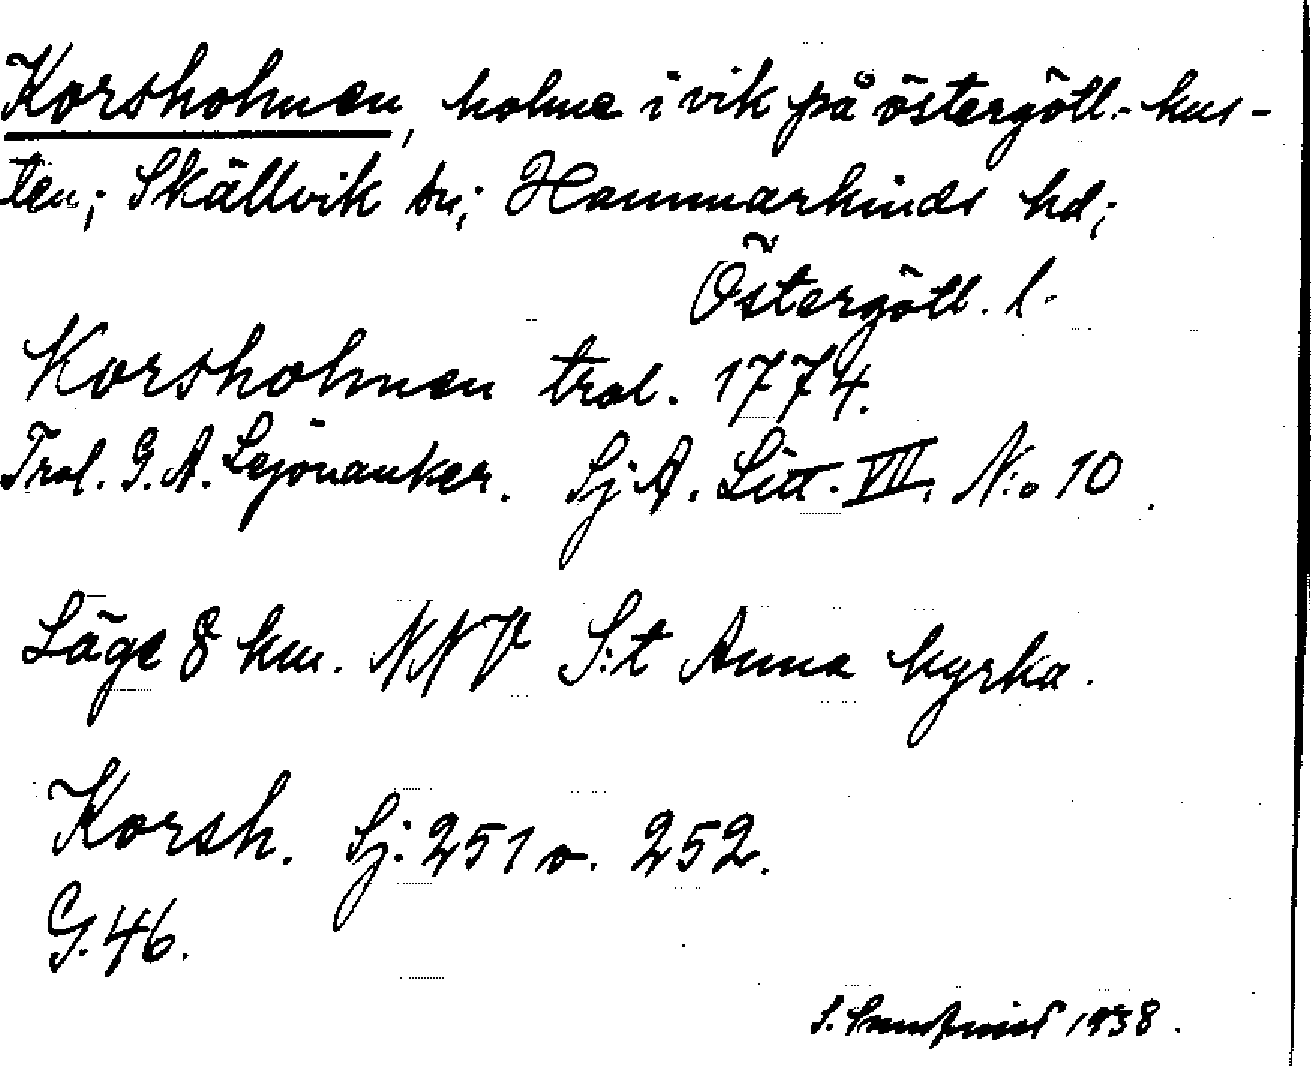 Korsholmen, holme i vik på östergötl.- kus-
ten; Skällvik sn; Hammarkinds hd;
Östergötl. l.
Korsholmen trol. 1774.
Trol. G. A. Lejonanker. Sj. A. Litt. VII. N:o 10.
Läge 8 km. NNV S:t Anna kyrka.
Korsh. Sj. 251 o. 252.
G. 46.
S. 1938.